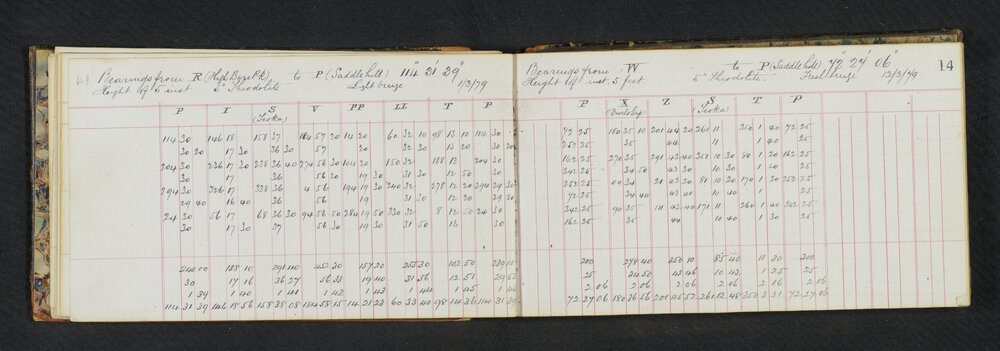 Bearings from R (High Bzze Pk) to P (Saddle hill) 114° 31' 39"
Height of 5 inst 5" Theodolite Light breeze 1/3/79
P I S V PP LL T P
(Sroka)
114 30 146 18 158 37 184 57 20 14 20 60 32 10 98 13 10 114 30
30 20 17 30 36 30 57 30 32 30 13 20 30 20
204 30 236 17 30 238 36 40 274 56 30 104 20 150 32 188 13 204 30
30 17 36 56 20 19 30 31 30 12 50 30
294 30 326 17 338 36 4 56 194 19 30 240 32 278 12 20 294 29 30
29 40 16 40 36 56 19 31 30 12 20 29 20
24 30 56 17 68 36 30 94 56 50 284 19 50 330 32 8 12 50 24 30
30 17 30 37 56 30 19 30 31 50 13 30
240 00 138 10 291 40 453 30 157 20 255 30 102 50 239 10
30 17 16 36 27 56 33 19 40 31 56 12 51 29 53
1 39 1 40 1 41 1 42 1 43 1 44 1 45
114 31 39 146 18 56 158 38 08 184 58 15 14 21 23 60 33 40 98 14 36 114 31 39
Bearings from W to P (Saddle hill) 72° 27' 06" 14
Height of inst. 5 feet 5" Theodolite. Fresh breeze 13/3/79
P X Z S T P
(Devils Cap) (Sroka)
72 25 180 35 10 201 44 20 261 11 350 1 40 72 25
252 25 35 44 11 1 40 25
162 25 270 35 291 43 40 351 10 30 80 1 20 162 25
342 25 34 50 43 30 10 30 1 20 25
252 25 00 34 21 43 20 81 10 20 170 1 20 252 25
72 25 34 40 43 40 10 40 1 25
342 25 90 35 111 43 40 171 11 260 1 40 342 25
162 25 35 44 10 40 1 30 25
200 278 40 350 10 85 40 11 30 200
25 34 50 43 46 10 42 1 25 25
2 06 2 06 2 06 2 06 2 06 2 06
72 27 06 180 36 56 201 45 52 261 12 48 350 3 31 72 27 06